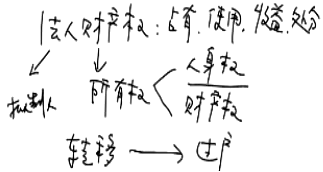 法人财产权：占有、使用、收益、处分
拟制人 所有权 人身权
财产权
转移 → 过户